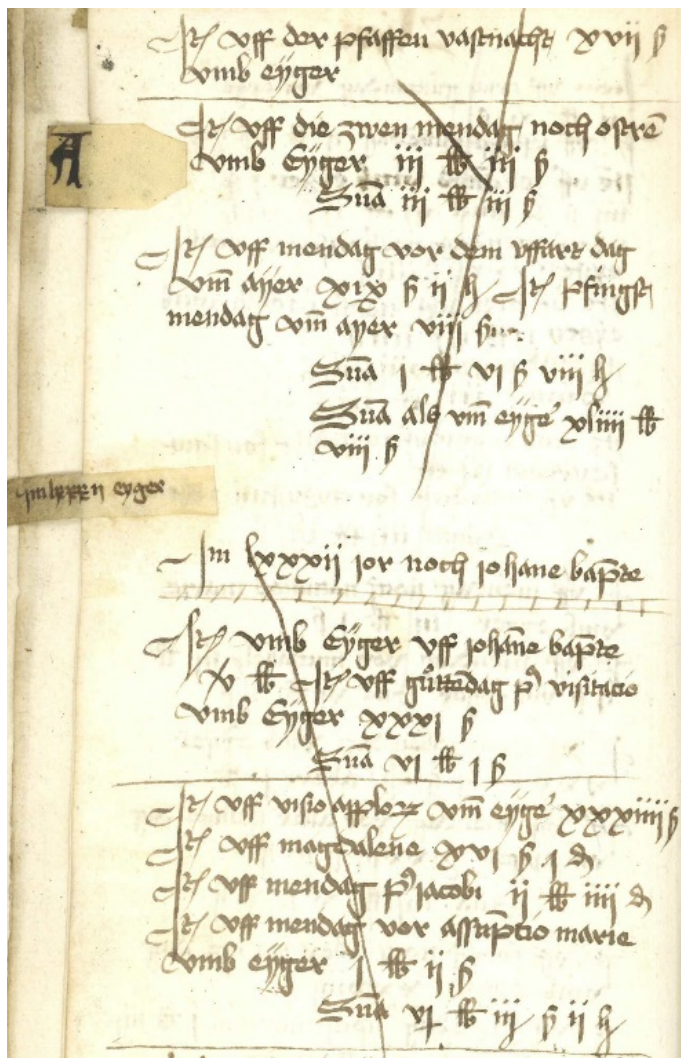 Itē uff der pfaffen vastnacht xvii ß
vmb eyger
A
Itē uff die zwen mendag noch ostrē
vmb Eyger iii lb iii ß
Sūa iii lb iii ß
Itē uff mendag vor dem uffart dag
vm̄ ayer xix ß ii h Itē pfingst
mendag vm̄ ayer viii ß
Sūa i lb vi ß viii h
Sūa als vm̄ eyge xliiii lb
viii ß
eyger
Im lxxxii ior noch iohane bap̄te
Itē vmb Eyger uff iohāne bap̄te
v lb Itē uff gůttēdag p visitacio
vmb Eyger xxxi ß
Sūa vi lb i ß
Itē uff visio applorꝝ vm̄ eyge xxxiiii ß
Itē uff magdalene xvi ß i d
Itē uff mendag p iacobi ii lb iiii d
Itē uff mendag vor assūptio marie
vmb eyger i lb ii ß
Sūa vi lb iii ß ii h